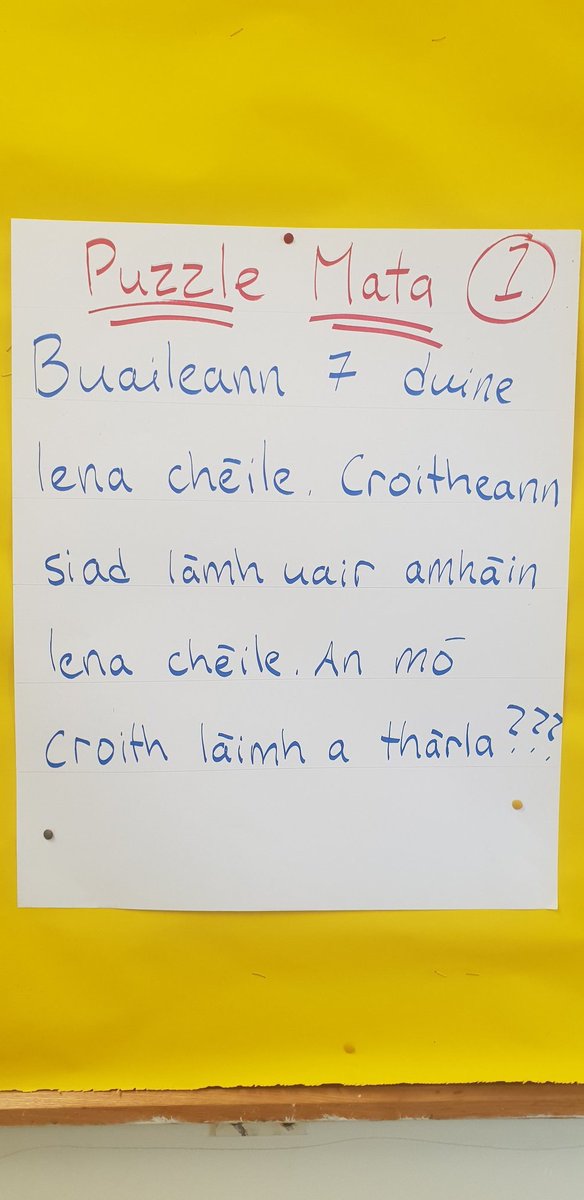 Puzzle Mata 1
Buaileann 7 duine
lena chēile. Croitheann
siad lāmh uair amhāin
lena chēile. An mō
croith lāimh a thārla???